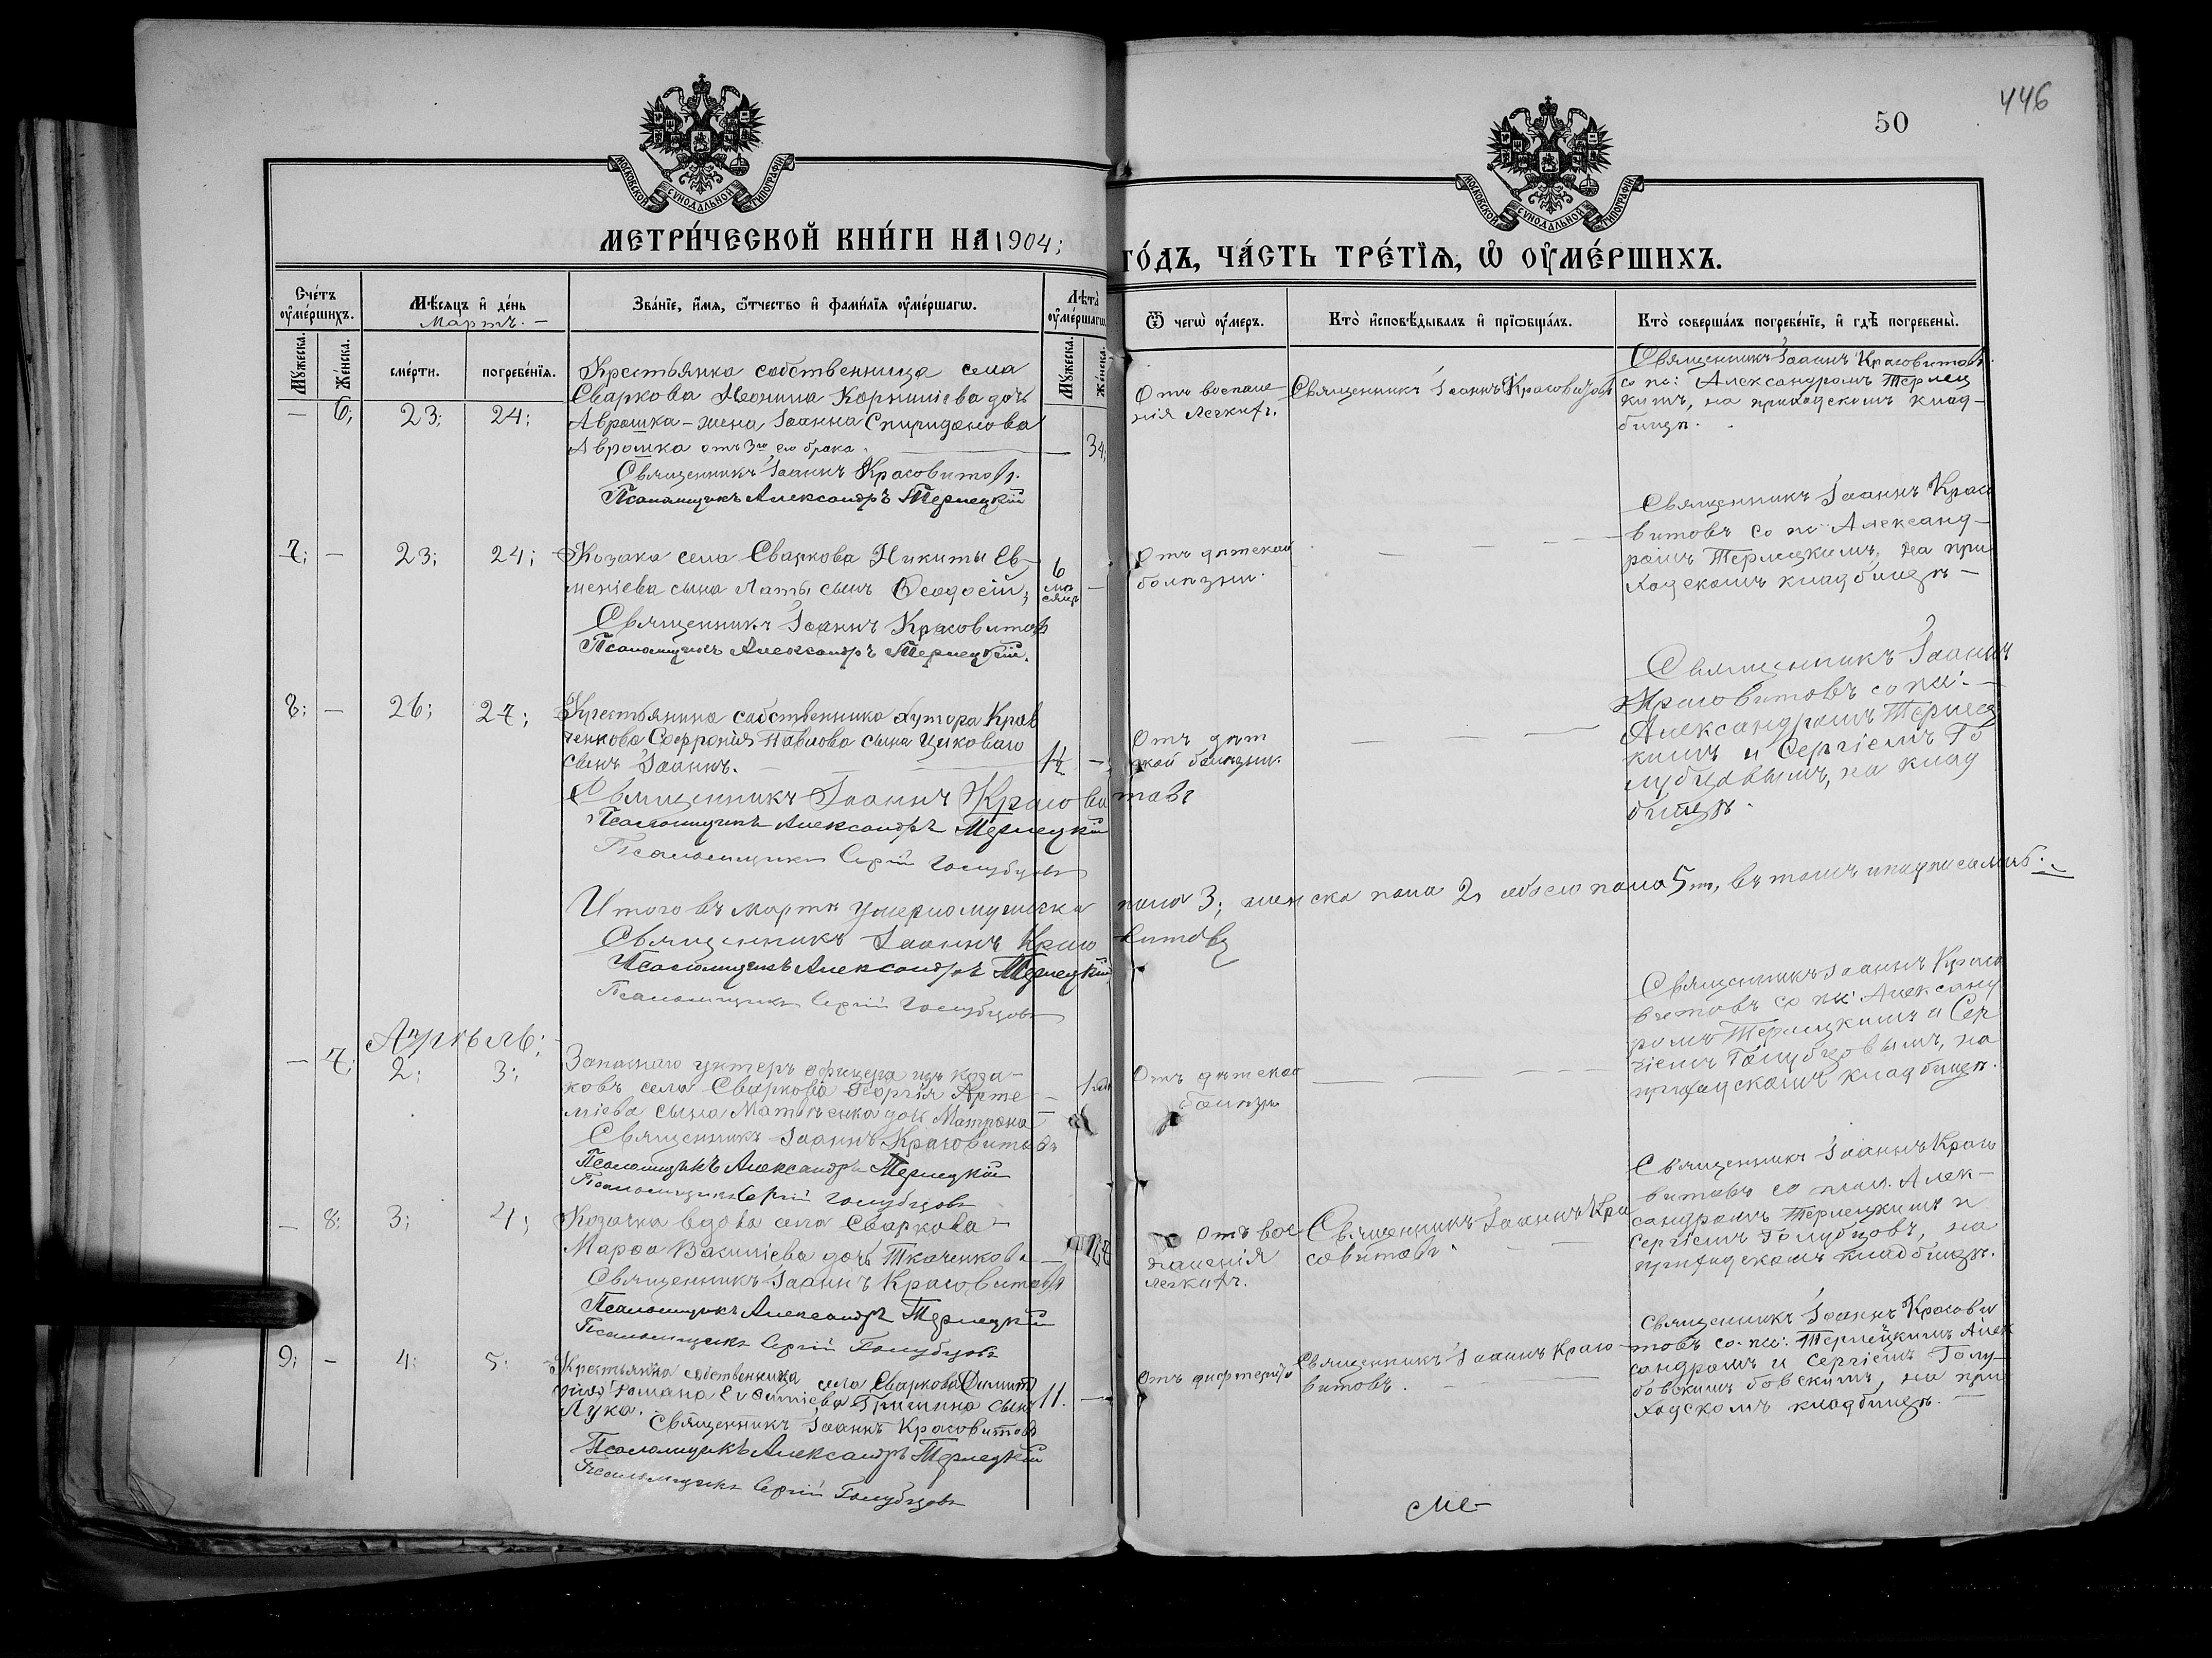 446
50
МОСКОВСКОЙ СѴНОДАЛЬНОЙ ТИПОГРАФІИ
МОСКОВСКОЙ СѴНОДАЛЬНОЙ ТИПОГРАФІИ
МЕТРИ́ЧЕСКОЙ КНИ́ГИ НА 1904;
ГО́ДЪ, ЧА́СТЬ ТРЕ́ТІѦ, Ѡ҆ ОУ҆МЕ́РШИХЪ.
Сче́тъ оу҆ме́ршихъ.
Мѣ́сяцъ и҆ де́нь
Мартъ. —
Зва́нїе, и҆́мя, ѻ҆́тчество и҆ фами́лїя оу҆ме́ршагѡ.
Лѣта̀ оу҆ме́ршагѡ.
Ѿ чегѡ̀ оу҆́меръ.
Кто̀ и҆сповѣ́дывалъ и҆ прїѡбща́лъ.
Кто̀ соверша́лъ погребе́нїе, и҆ гдѣ̀ погребены̀.
Мꙋ́жеска.
Же́нска.
сме́рти.
погребе́нїя.
Мꙋ́жеска.
Же́нска.
— 6; 23; 24;
Крестьянка собственница села
Сваркова Корниліева дочь
Аврошка – жена Іоанна Спиридонова
Аврошка отъ 3го его брака. — 34;
Священникъ Іоаннъ Красовитовъ.
Псаломщикъ Александръ Терлецкій
Отъ воспале
нія легкихъ.
Священникъ Іоаннъ Красовитовъ
Священникъ Іоаннъ Красовитовъ
со пс: Александромъ Терлец
кимъ, на приходскомъ клад-
бищѣ.
7; — 23; 24;
Козака села Сваркова Никиты Ев-
меніева сына Латы сынъ Ѳеодосій; 6 мѣ сяцъ —
Священникъ Іоаннъ Красовитовъ
Псаломщикъ Александръ Терлецкій.
Отъ дѣтской
болѣзни.
Священникъ Іоаннъ Красо
витовъ со пс Александ-
ромъ Терлецкимъ, на при
ходскомъ кладбищѣ —
8; — 26; 27;
Крестьянина собственника хутора Крав
ченкова Софронія Павлова сына
сынъ Іоаннъ. — 1½ —
Священникъ Іоаннъ Красовитовъ
Псаломщикъ Александръ Терлецкій
Псаломщикъ Сергій Голубцовъ
Отъ дѣт
ской болѣзни.
Священникъ Іоаннъ
Красовитовъ со пс: —
Александромъ Терлец
кимъ и Сергіемъ Го
лубцовымъ, на клад
бищѣ.
Итого въ мартѣ умерло мужска пола 3; женска пола 2, обоего пола 5ть, въ томъ и подписались.
Священникъ Іоаннъ Красовитовъ
Псаломщикъ Александръ Терлецкій
Псаломщикъ Сергій Голубцовъ
Апрѣль;
— 7; 2; 3;
Запаснаго унтеръ офицера изъ коза-
ковъ села Сваркова Георгія Арте —
міева сына дочь Матрона —
Священникъ Іоаннъ Красовитовъ
Псаломщикъ Александръ Терлецкій
Псаломщикъ Сергій Голубцовъ
Отъ дѣтской
болѣзн
Священникъ Іоаннъ Красо
витовъ со пс: Александ
ромъ Терлецкимъ и Сер
гіемъ Голубцовымъ, на
приходскомъ кладбищѣ.
— 8; 3; 4;
Козачка вдова села Сваркова —
Марѳа Василіева дочь Ткаченкова —
Священникъ Іоаннъ Красовитовъ
Псаломщикъ Александръ Терлецкій
Псаломщикъ Сергій Голубцовъ
Отъ вос
паленія
легкихъ.
Священникъ Іоаннъ Кра
совитовъ.
Священникъ Іоаннъ Красо
витовъ со псал. Алек-
сандромъ Терлецкимъ и
Сергіемъ Голубцовъ, на
приходскомъ кладбищѣ.
9; — 4; 5;
Крестьянина собственника села Сваркова
Романа Гришина сынъ 11. —
Лука.
Священникъ Іоаннъ Красовитовъ
Псаломщикъ Александръ Терлецкій
Псаломщикъ Сергій Голубцовъ
Отъ дифтерита
Священникъ Іоаннъ Красо
витовъ.
Священникъ Іоаннъ Красови
товъ со пс: Терлецкимъ Алек
сандромъ и Сергіемъ Голу-
бовскимъ, на при
ходскомъ кладбищѣ. —